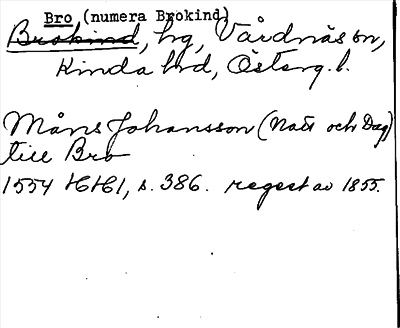 Bro (numera Brokind)
Brokind, hg, Vårdnäs sn,
Kinda hd, Österg. l.
Måns Johansson (Natt och Dag)
till Bro
1554 HH1, s. 386. regest av 1855.